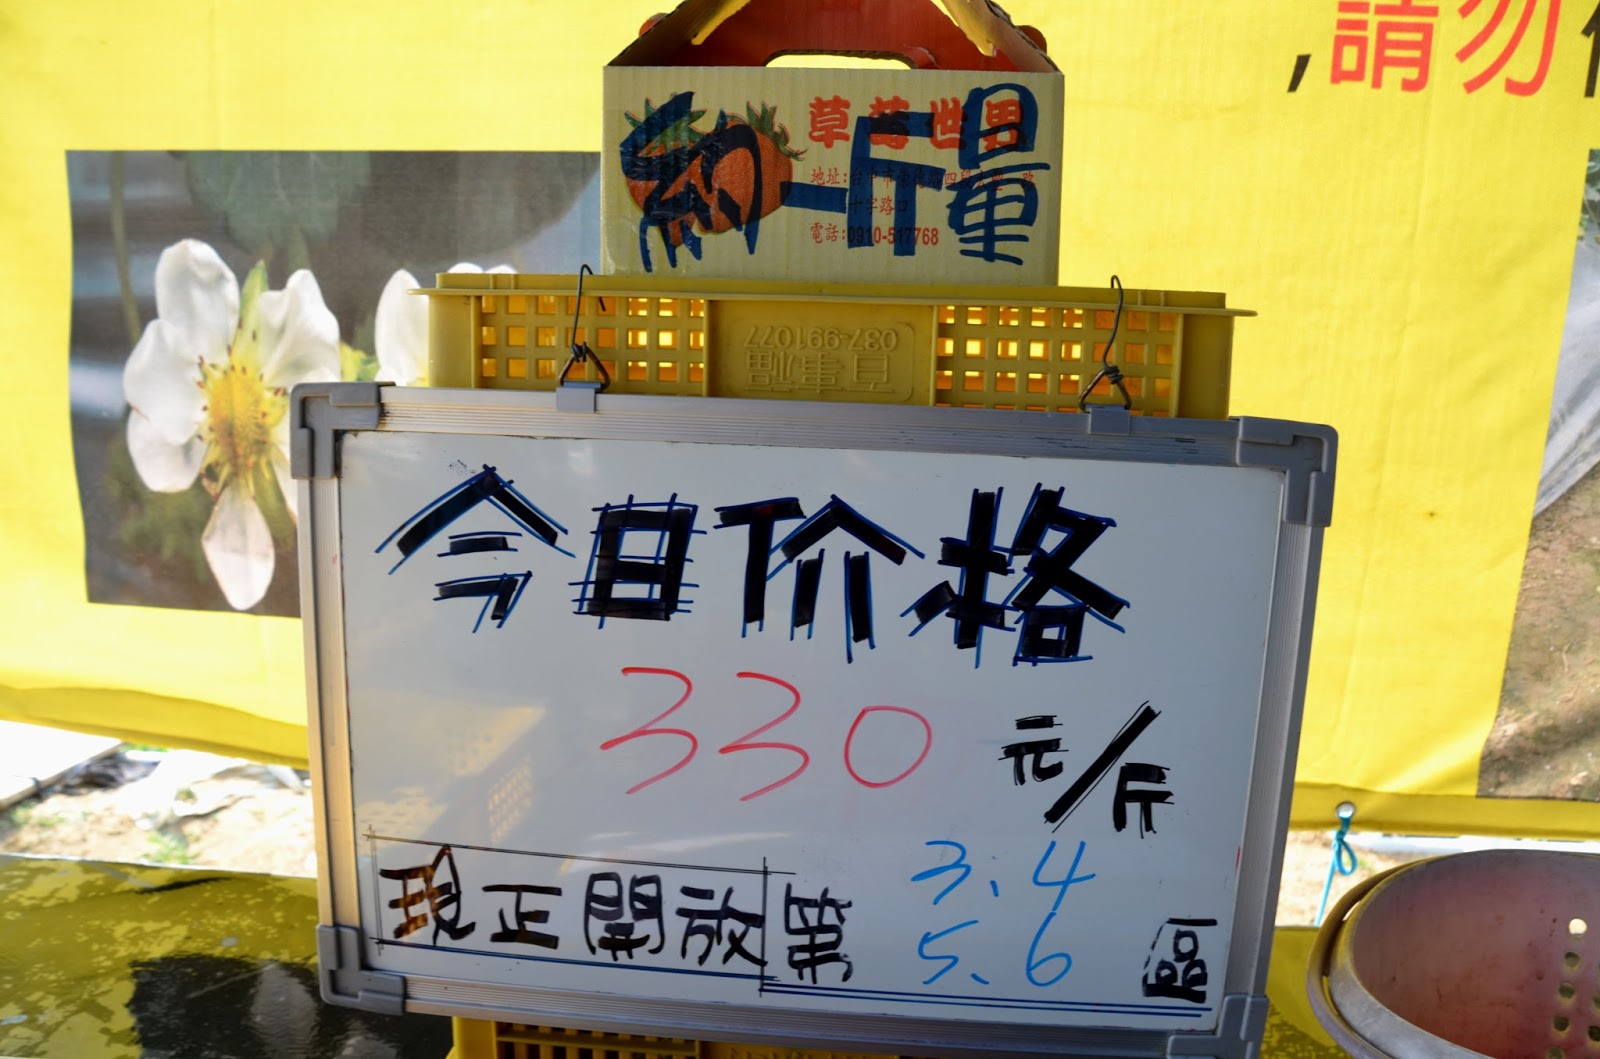 ,請勿
草莓世界
地址:台中市
十字路口
電話:0910-517768
約一斤量
037-991077
今日价格
330元/斤
現正開放第3.4
5.6區